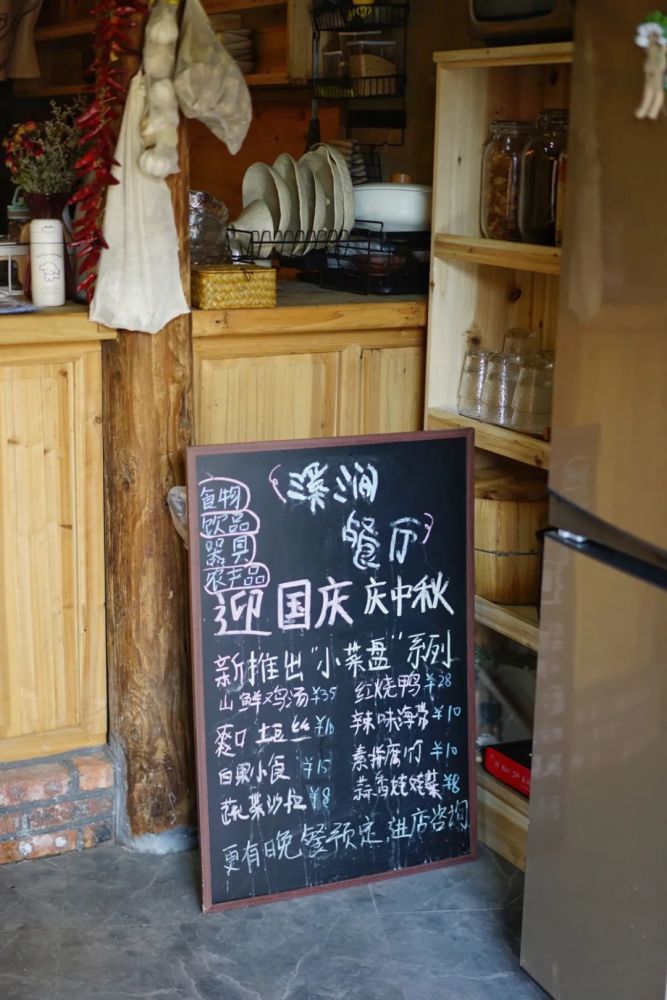 食物
饮品
器具
农产品
溪涧
餐厅
迎国庆 庆中秋
新推出“小菜盘”系列
山鲜鸡汤 ¥35 红烧鸭 ¥28
爽口土豆丝 ¥16 辣味海带 ¥10
白果小食 ¥15 素拼腐竹 ¥10
蔬菜沙拉 ¥8 蒜香娃娃菜 ¥8
更有晚餐预定,进店咨询